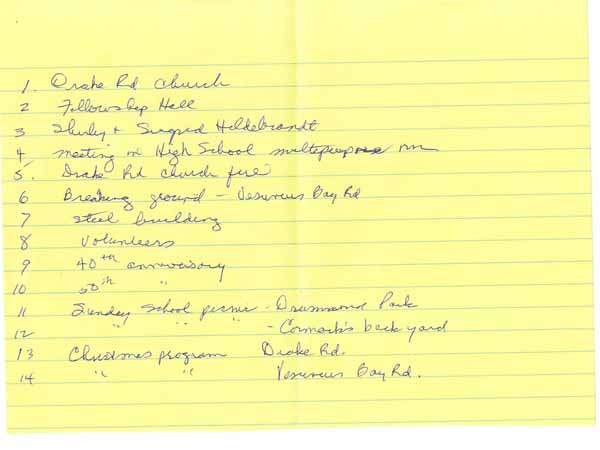 1. Drake Rd church
2 Fellowship Hall
3 Shirley + Sigurd Hildebrandt
4 meeting in High School multipurpose rm
5. Drake Rd church fire
6 Breaking ground - Vesuvius Bay Rd
7 steel building
8 volunteers
9 40th anniversary
10 50th "
11 Sunday School picnic - Drummond Park
12 " " " - Cormack's back yard
13 Christmas program Drake Rd.
14 " " Vesuvius Bay Rd.